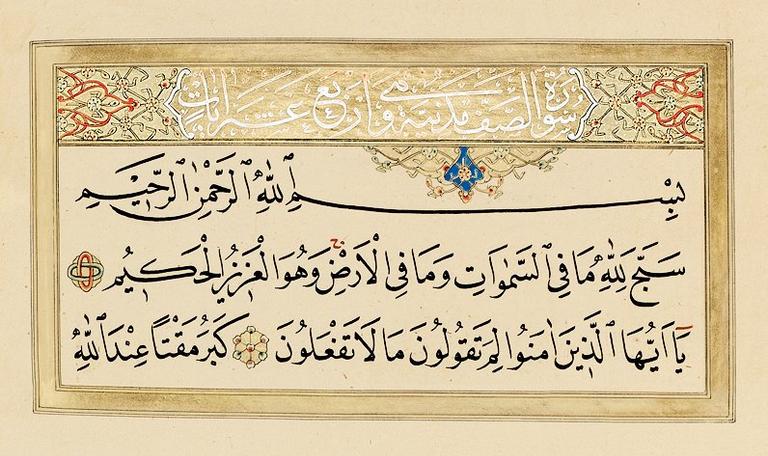 سورة الصف مدنية وهي اربع عشرة ايات
بِسْمِ اللهِ الرَّحْمٰنِ الرَّحِيمِ
سَبَّحَ لِلّٰهِ مَا فِي السَّمٰوَاتِ وَمَا فِي الْاَرْضِ وَهُوَ الْعَزِيزُ الْحَكِيمُ
يَٓا اَيُّهَا الَّذِينَ اٰمَنُوا لِمَ تَقُولُونَ مَا لَا تَفْعَلُونَ كَبُرَ مَقْتًا عِنْدَ اللهِ